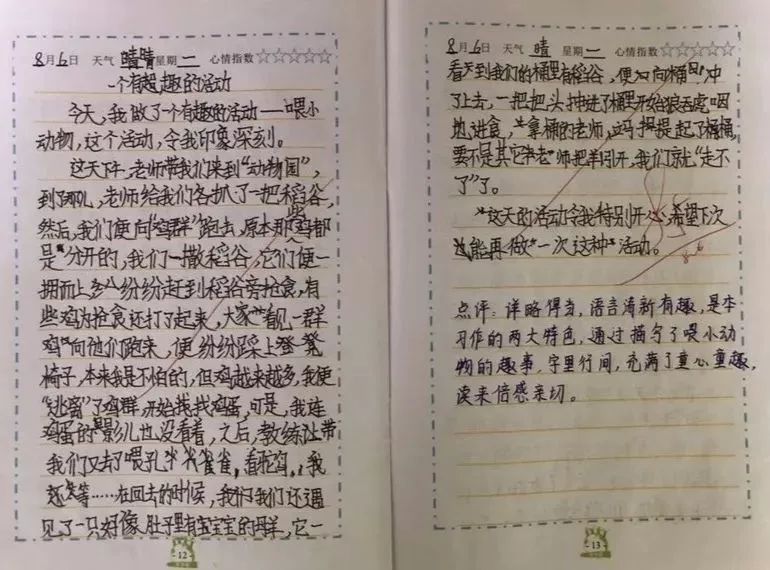 8月6日 天气 晴晴 星期二 心情指数☆☆☆☆☆
一个有趣的活动
今天,我做了一个有趣的活动——喂小
动物,这个活动,令我印象深刻。
这天下午,老师带我们来到“动物园”,
到了那儿,老师给我们各扒了一把稻谷,
然后,我们便向“鸡群”跑去,原本那些鸡都
是分开的,我们一撒稻谷,它们便一
拥而上,纷纷赶到稻谷旁抢食,有
些鸡为抢食还打了起来,大家看见一群
鸡向他们跑来,便纷纷踩上凳
椅子,本来我是不怕的,但鸡越来越多,我便
“逃窜”了鸡群,开始找找鸡蛋,可是,我连
鸡蛋的影儿也没看着,之后,教练带
我们又去了喂孔雀,看鸵鸟,
等……在回去的时候,我们我们还遇
见了一只好像肚子里有宝宝的母羊,它一
12
8月6日 天气 晴 星期二 心情指数☆☆☆☆☆
看到我们的桶里有稻谷,便向桶冲
了上去,一把把头抻进了桶里开始狼吞虎咽
地进食,拿桶的老师,提起了桶,
要不是其它老师把羊引开,我们就“走不
了”了。
这天的活动令我特别开心,希望下次
能再做一次这种活动。
点评:详略得当,语言清新有趣,是本
习作的两大特色,通过描写了喂小动
物的趣事,字里行间,充满了童心童趣,
读来倍感亲切。
13